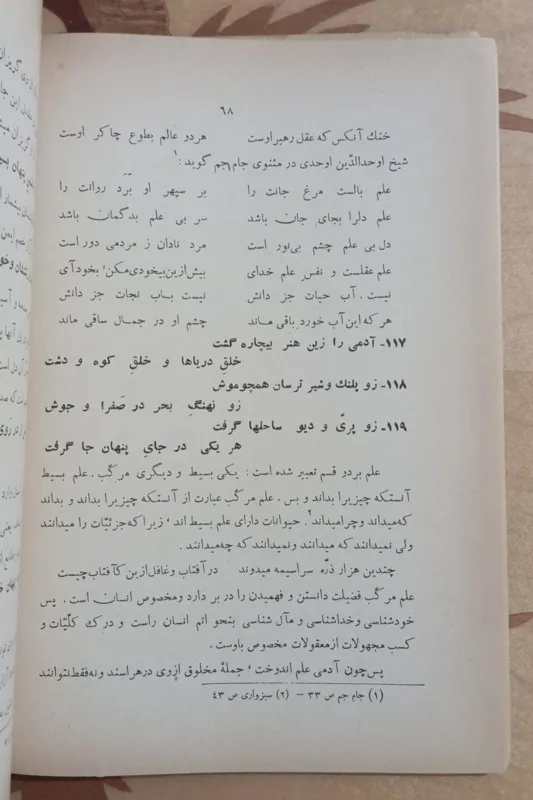 ۶۸
خنك آنكس كه عقل رهبر اوست هر دو عالم بطوع چاكر اوست
شيخ اوحدالدّين اوحدى در مثنوى جام جم گويد:۱
علم بالست مرغ جانت را بر سپهر او بَرَد روانت را
علم دلرا بجاى جان باشد سر بى علم بدگمان باشد
دل بى علم چشم بى‌نور است مرد نادان ز مردمى دور است
علم عقلست و نفس علم خداى بيش ازين بيخودى مكن، بخود آى
نيست آب حيات جز دانش نيست باب نجات جز دانش
هر كه اين آب خورد باقى ماند چشم او در جمال ساقى ماند
۱۱۷- آدمى را زين هنر بيچاره گشت
خلقِ درياها و خلقِ كوه و دشت
۱۱۸- زو پلنك وشير ترسان همچوموش
زو نهنگِ بحر در صَفرا و جوش
۱۱۹- زو پرىّ و ديو ساحلها گرفت
هر يكى در جاىِ پنهان جا گرفت
علم بر دو قسم تعبير شده است: يكى بسيط و ديگرى مركّب. علم بسيط
آنستكه چيزيرا بداند و بس. علم مركّب عبارت از آنستكه چيزيرا بداند و بداند
كه ميداند و چرا ميداند۲. حيوانات داراى علم بسيط اند، زيرا كه جزئيّات را ميدانند
ولى نميدانند كه ميدانند ونميدانند كه چه ميدانند.
چندين هزار ذرّه سراسيمه ميدوند در آفتاب و غافل ازين كآفتاب چيست
علم مركّب فضيلت دانستن و فهميدن را در بر دارد ومخصوص انسان است. پس
خودشناسى وخداشناسى و مآل شناسى بنحو اتم انسان راست و درك كلّيّات و
كسب مجهولات از معقولات مخصوص باوست.
پس چون آدمى علم اندوخت، جملهٔ مخلوق ازوى در هراسند و نه فقط نتوانند
(۱) جام جم ص ۳۳ - (۲) سبزوارى ص ۴۳